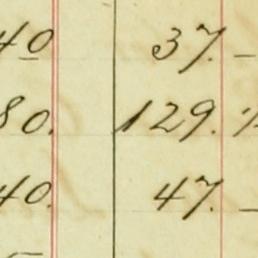 40 37. –
80. 129.
40. 47. –